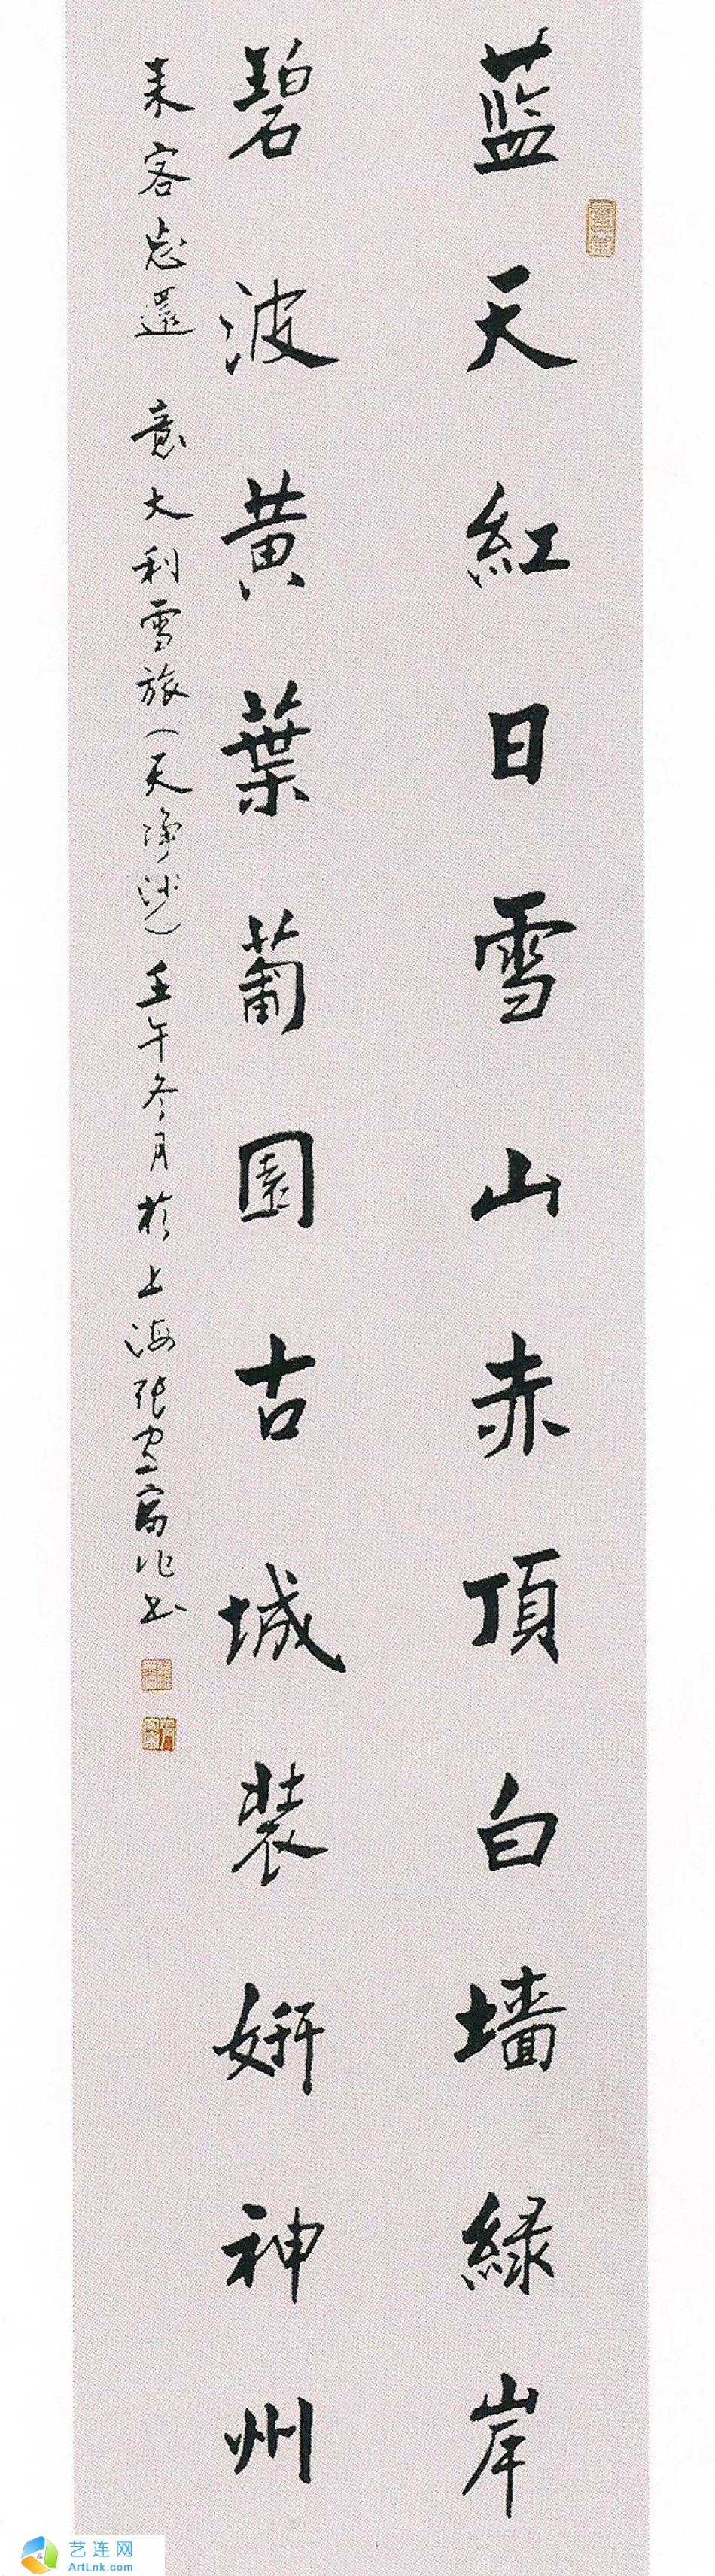 蓝天紅日雪山赤頂白墙緑岸
碧波黄葉葡園古城装妍神州
来客忘還 意大利雪旅（天净沙）壬午冬月於上海張 富作书
艺连网
ArtLnk.com